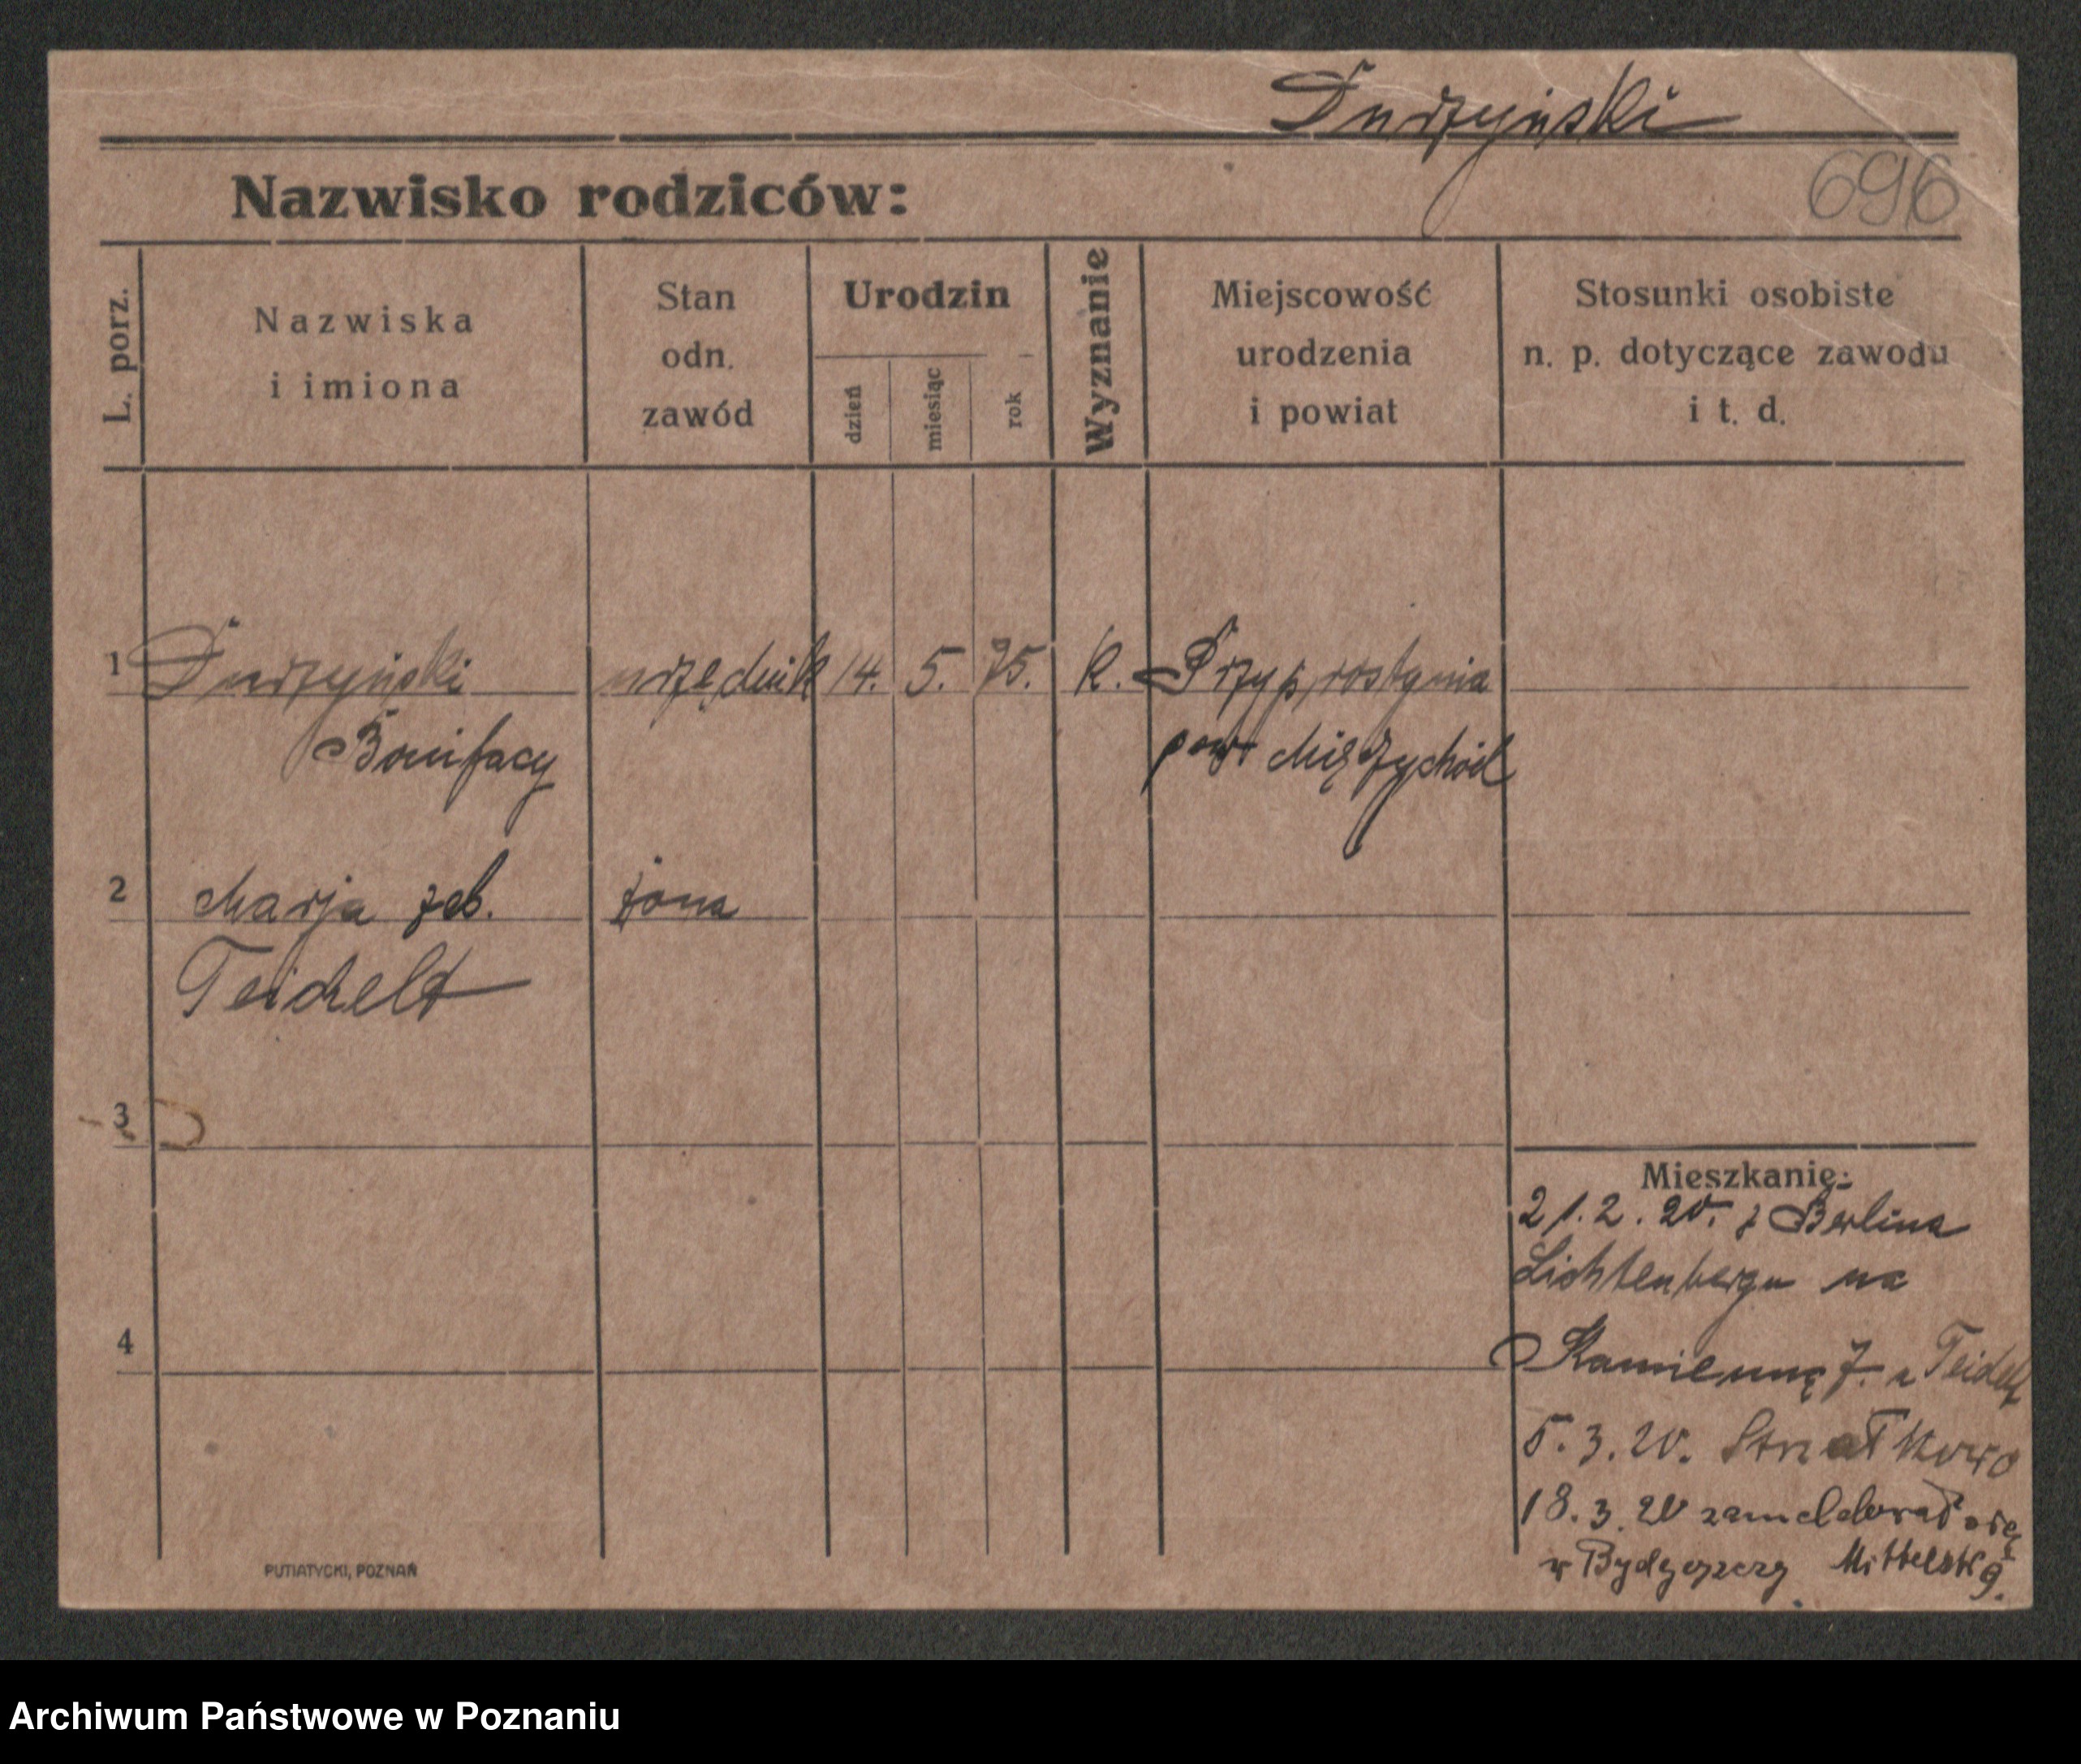 Durzyński
Nazwisko rodziców:
696
L. porz.
Nazwiska
i imiona
Stan
odn.
zawód
Urodzin
dzień
miesiąc
rok
Wyznanie
Miejscowość
urodzenia
i powiat
Stosunki osobiste
n. p. dotyczące zawodu
i t. d.
1 Durzyński urzędnik 14. 5. 75. K. Przyprostynia
Bonifacy pow Międzychód
2 Marja zeb. żona
Teichelt
3
Mieszkanie:
21.2.20. z Berlina
Lichtenbergu na
4
Kamienną 7. u Teichelt
5.3.20. Strzałkowo
18.3.20 zameldował się
w Bydgoszczy Mittelstr 9.
PUTIATYCKI, POZNAŃ
Archiwum Państwowe w Poznaniu